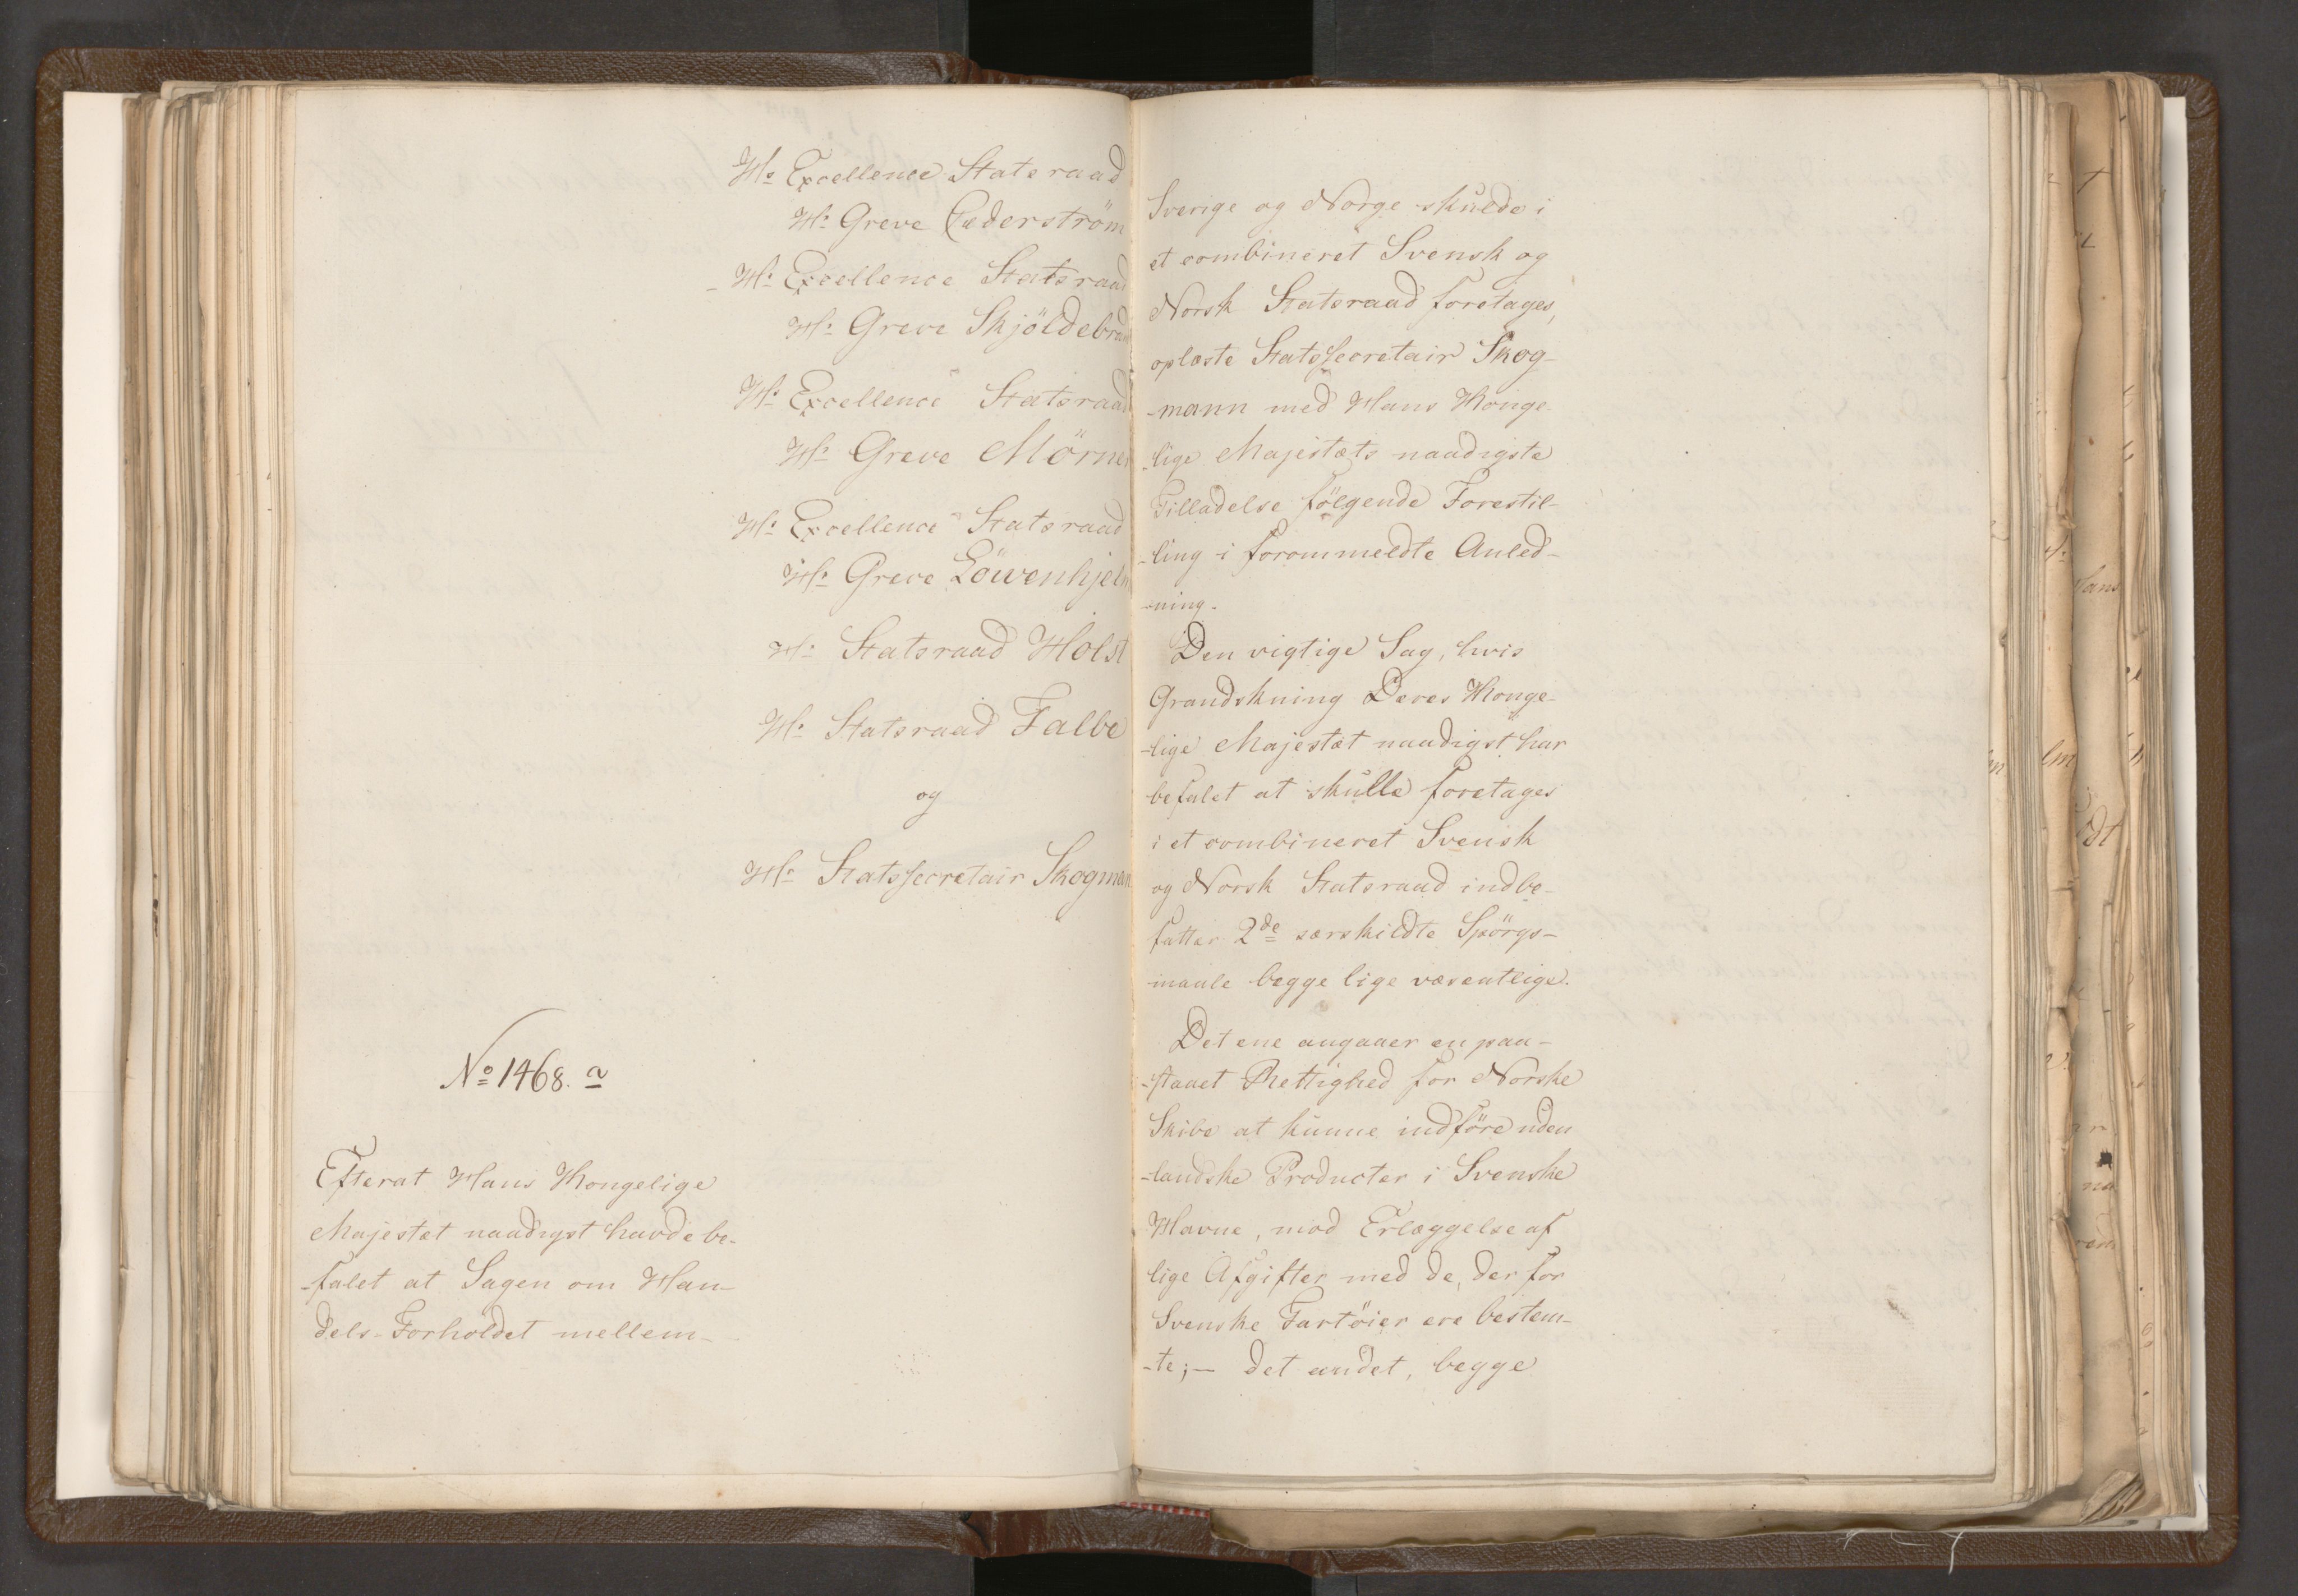 Hs Excellence Statsraad
Hr Greve Cæderström
Hs Excellence Statsraad
Hr Greve Skjöldebrand
Hs Excellence Statsraad
Hr Greve Mörner
Hs Excellence Statsraad
Hr Greve Löwenhjelm
Hr Statsraad Holst
Hr Statsraad Falbe
og
Hr Statssecretair Skogman
No 1468. a
Efterat Hans Kongelige
Majestæt naadigst havde be-
-falet at Sagen om Han-
dels-Forholdet mellem-
Sverige og Norge skulde i
et combineret Svensk og
Norsk Statsraad foretages,
oplæste Statssecretair Skog-
-mann med Hans Konge
-lige Majestæts naadigste
Tilladelse fölgende Forestil-
-ling i forommeldte Anled-
-ning.
Den vigtige Sag, hvis
Grandskning Deres Konge-
-lige Majestæt naadigst har
befalet at skulle foretages
i et combineret Svensk
og Norsk Statsraad indbe-
fatter 2de særskildte Spörgs-
maale begge lige væsentlige.
Det ene angaaer en paa-
-staaet Rettighed for Norske
Skibe at kunne indföre uden
-landske Producter i Svenske
Havne, mod Erlæggelse af
lige Afgifter med de, der for
Svenske Fartöier ere bestem-
-te; — det andet, begge